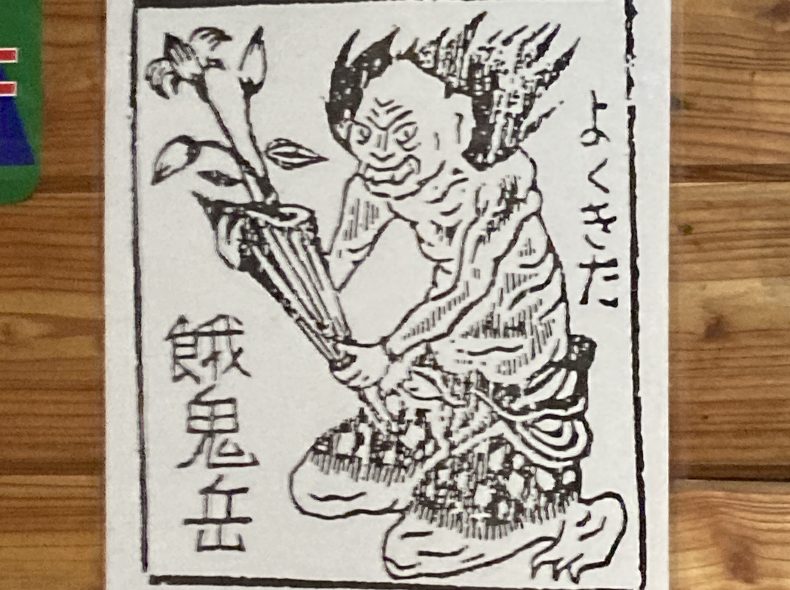 よくきた
餓鬼岳